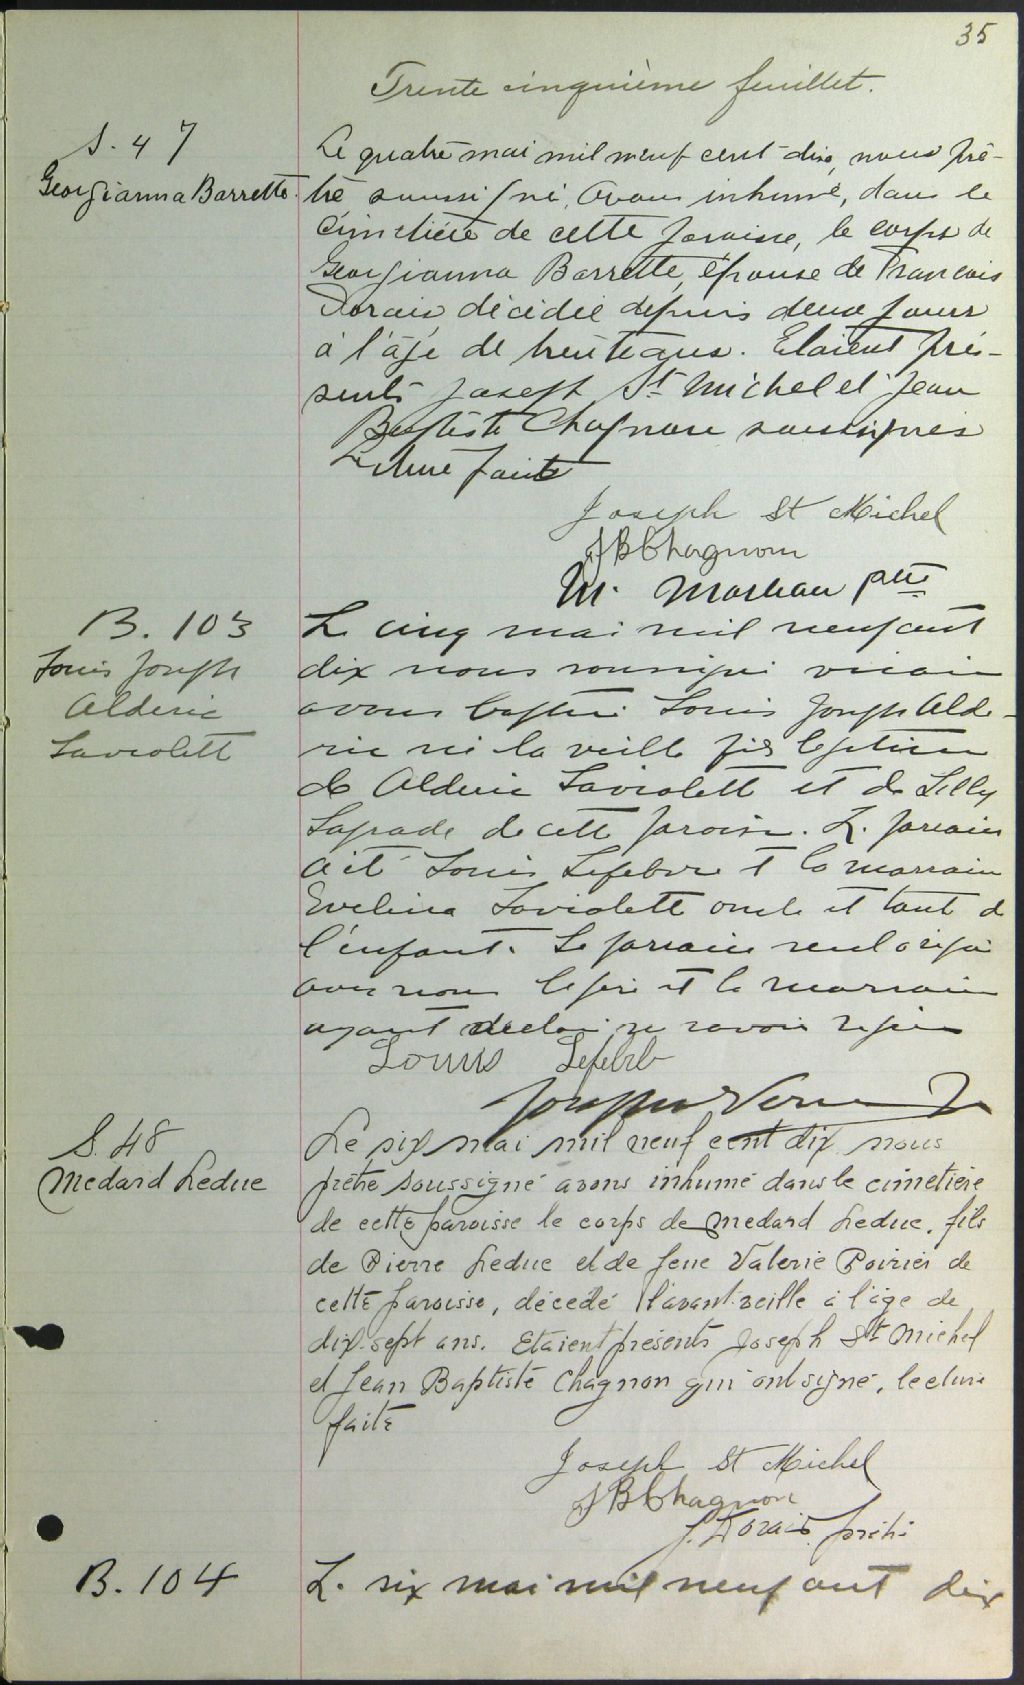 35
Trente cinquième feuillet.
S. 47
Georgianna Barrette.
Le quatre mai mil neuf cent dix, nous prê-
tre soussigné, avons inhumé, dans le
cimetière de cette paroisse, le corps de
Georgianna Barrette, épouse de Francois
Dorais décédée depuis deux jours
à l'âge de trente ans. Etaient pré-
sents Joseph St Michel et Jean
Baptiste Chagnon soussignés
Lecture faite
Joseph St Michel
JB Chagnon
M. Moreau ptre
B. 103
Louis Joseph
Alderic
Laviolette
Le cinq mai mil neuf cent
dix nous soussigné vicaire
avons baptisé Louis Joseph Alde-
ric né la veille fils legitime
de Alderic Laviolette et de Lilly
de cette paroisse. Le parrain
a été Louis Lefebvre et la marraine
Evelina Laviolette oncle et tante de
l'enfant. Le parrain seul a signé
avec nous le père et la marraine
ayant declaré ne savoir signer
Louis Lefebvre
Joseph
S. 48
Medard Leduc
Le six mai mil neuf cent dix nous
prêtre soussigné avons inhumé dans le cimetière
de cette paroisse le corps de Medard Leduc, fils
de Pierre Leduc et de feue Valerie Poirier de
cette paroisse, décédé l'avant-veille à l'âge de
dix-sept ans. Etaient présents Joseph St Michel
et Jean Baptiste Chagnon qui ont signé, lecture
faite
Joseph St Michel
JB Chagnon
J. Dorais, prêtre
B. 104
Le six mai mil neuf cent dix